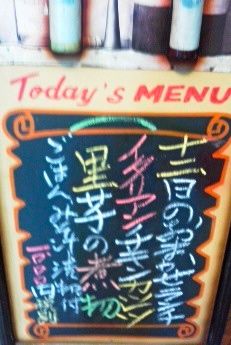 Today's MENU
十三日のおまかせランチ
イタリアンチキンカツ
里芋の煮物
ごはん、みそ汁、漬物付